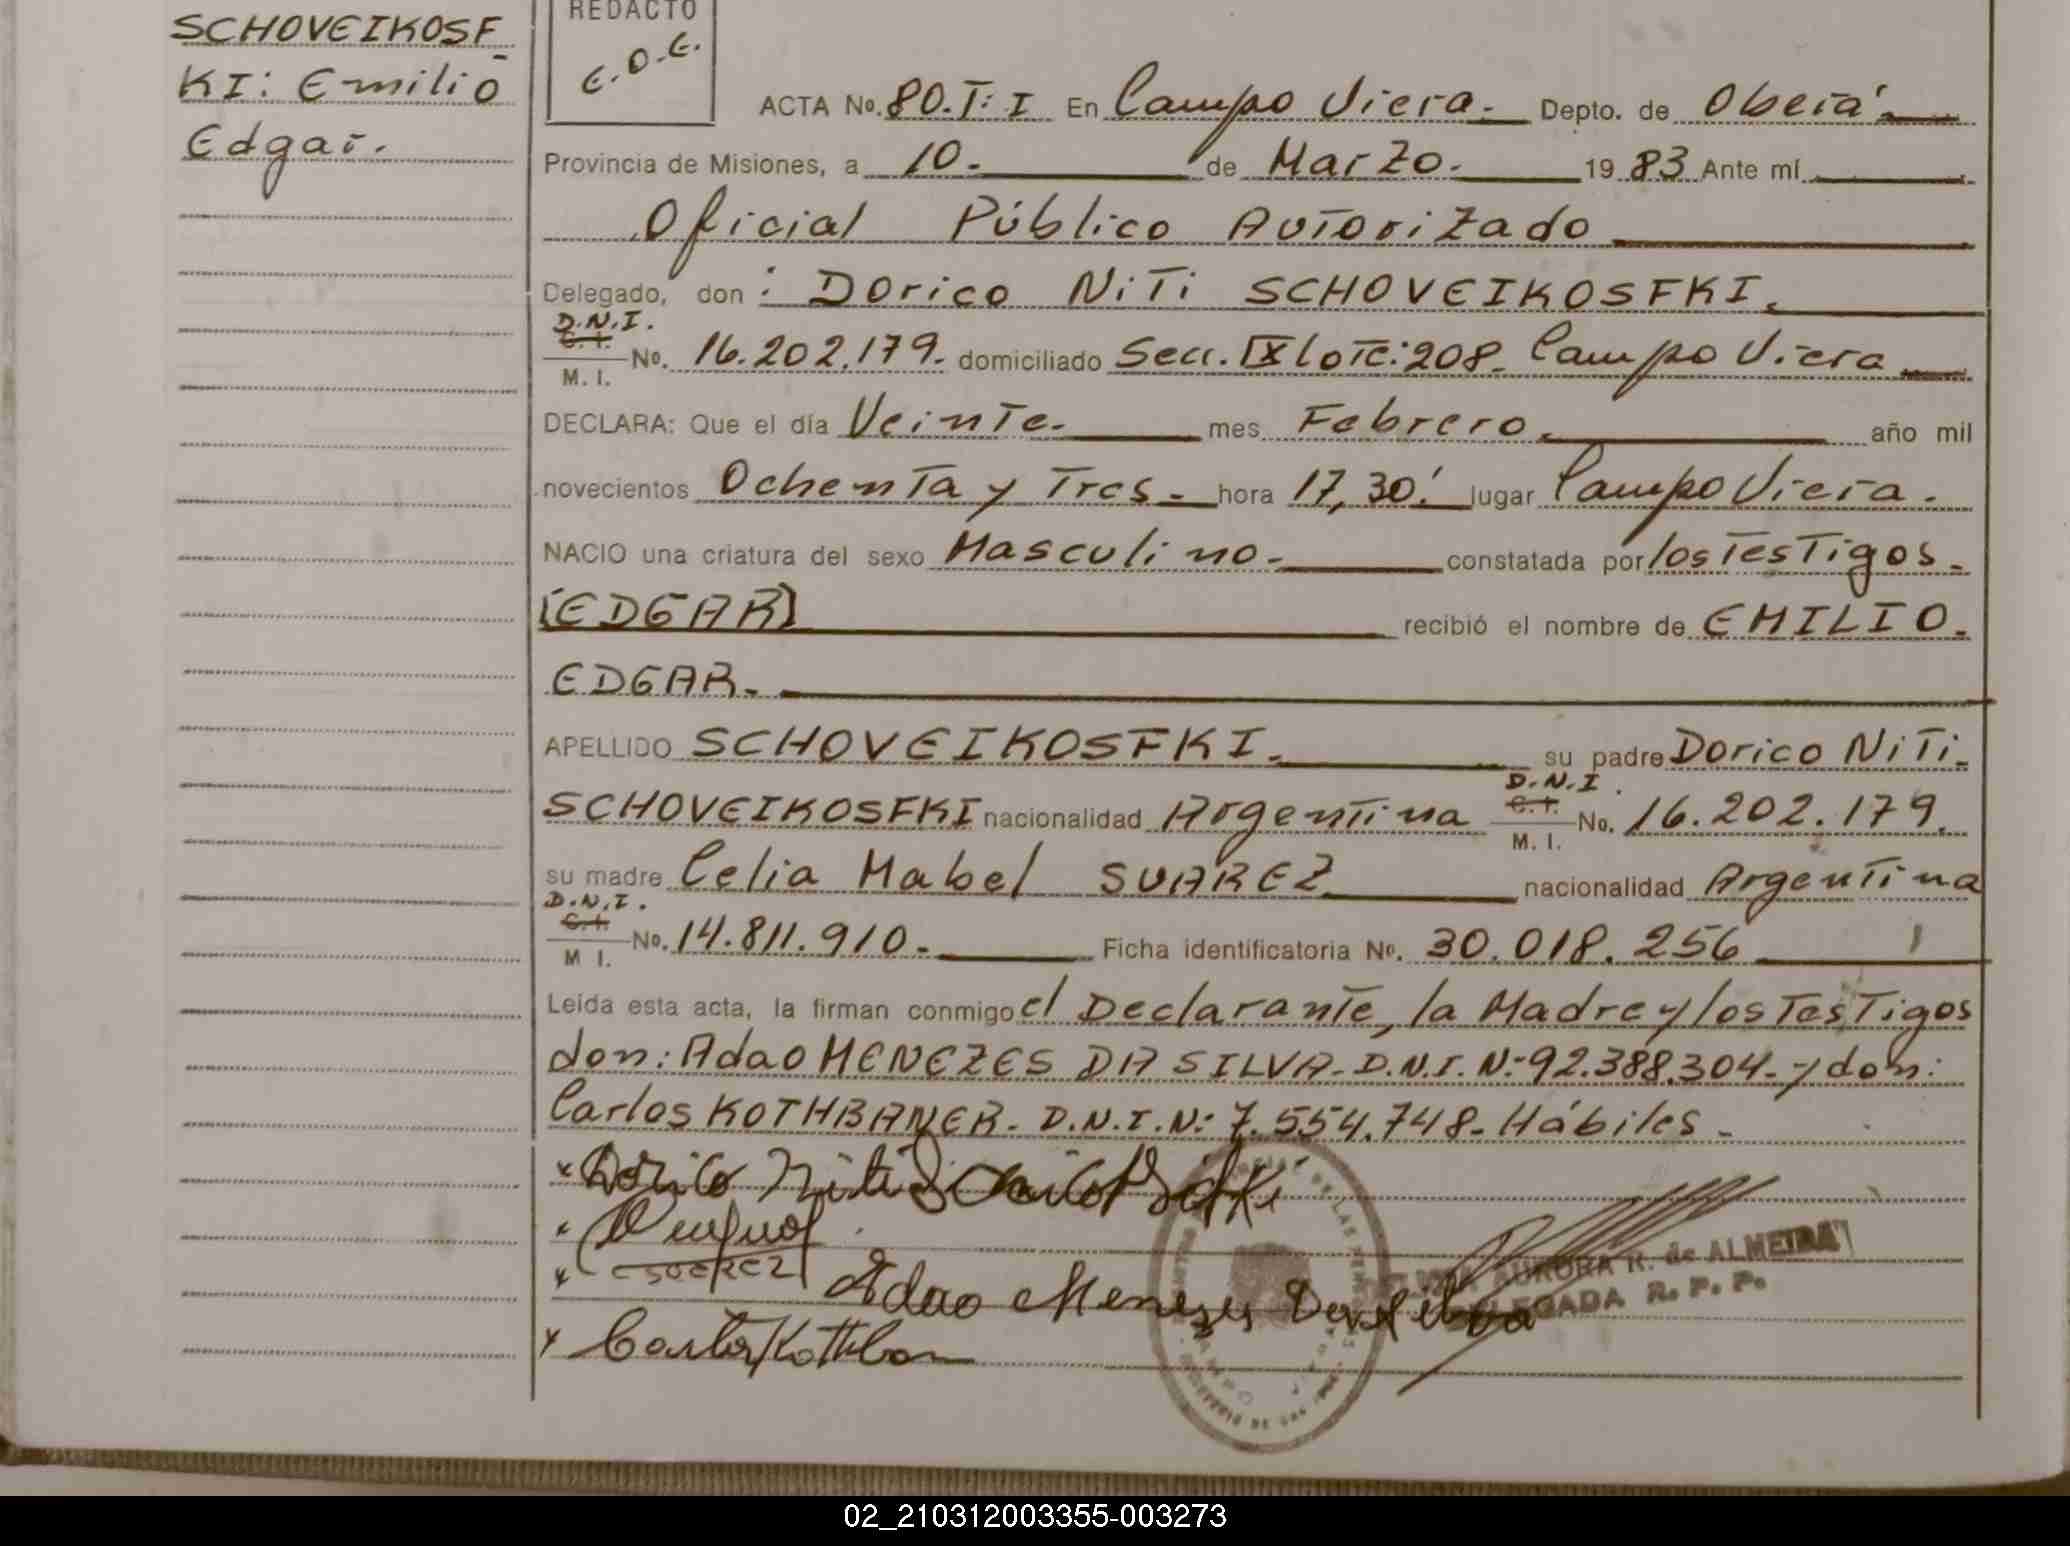 SCHOVEIKOSF
KI: Emilio
Edgar.
REDACTO
E.O.E.
ACTA No. 80.T:I En Campo Viera. Depto. de Oberá
Provincia de Misiones, a 10. de Marzo. 1983 Ante mí
Oficial Público Autorizado
Delegado, don: Dorico Niti SCHOVEIKOSFKI.
D.N.I.
C.I.
M. I. No. 16.202.179. domiciliado Secc. IX lote:208. Campo Viera
DECLARA: Que el día Veinte. mes Febrero. año mil
novecientos Ochenta y Tres. hora 17,30' lugar Campo Viera.
NACIO una criatura del sexo Masculino. constatada por los Testigos.
(EDGAR) recibió el nombre de EMILIO.
EDGAR.
APELLIDO SCHOVEIKOSFKI. su padre Dorico Niti.
D.N.I.
SCHOVEIKOSFKI nacionalidad Argentina C.I. M. I. No. 16.202.179.
su madre Celia Mabel SUAREZ nacionalidad Argentina
D.N.I.
C.I.
M I. No. 14.811.910. Ficha identificatoria No. 30.018.256
Leída esta acta, la firman conmigo el Declarante, la Madre y los Testigos
don: Adao MENEZES DA SILVA. D.N.I. N:92.388.304. y don:
Carlos KOTHBANER. D.N.I. N: 7.554.748. Hábiles.
Dorico Niti
Adao Menezes Da Silva
AURORA R. de ALMEIDA
DELEGADA R. P. P.
02_210312003355-003273